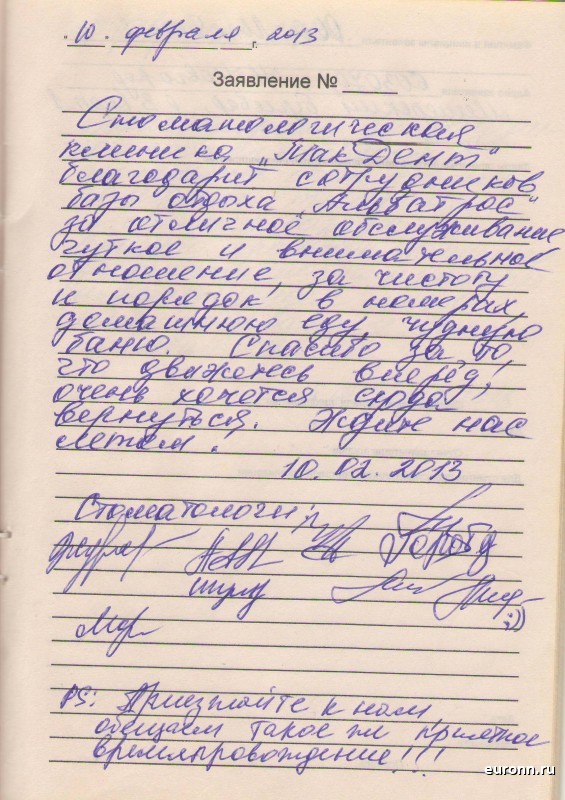 10 февраля г. 2013
Заявление № ____
Стоматологическая
клиника "МакДент"
благодарит сотрудников
базы отдыха "Альбатрос"
за отличное обслуживание
чуткое и внимательное
отношение, за чистоту
и порядок в номерах,
домашнюю еду, чудную
баню. Спасибо за то,
что движетесь вперёд!,
очень хочется сюда
вернуться. Ждите нас
летом!
10.02.2013
Стоматологи:
:))
PS: Приезжайте к нам
обещаем такое же приятное
времяпровождение!!!
euronn.ru